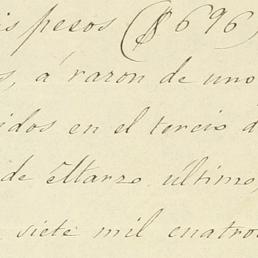 is pesos ($696)
s, á razon de uno
idos en el tercio d
de Marzo último,
siete mil cuatro